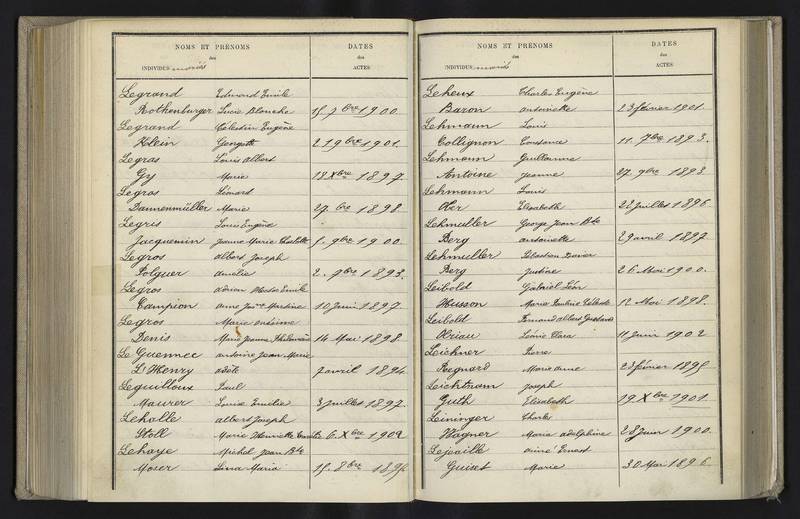 NOMS ET PRÉNOMS
des
INDIVIDUS mariés
DATES
des
ACTES
Legrand Edmond Emile
Rothenburger Lucie Blanche 15 7bre 1900.
Legrand Célestin Eugène
Klein 2 9bre 1901.
Legras Louis Albert
Gy Marie 18 Xbre 1897.
Legras Léonard
Dannenmüller Marie 1898.
Legris Louis Eugène
Jacquemin Jeanne Marie Charlotte 5. 9bre 1900.
Legros Albert Joseph
Polguer Amélie 1893.
Legros Adrien Emile
Campion Anne 10 Juin 1897.
Legros Marie
Denis Marie Jeanne Philomène 14 Mai 1898
Le Guennec Antoine Jean Marie
L'Henry Adèle 7 avril 1894.
Leguilloux Paul
Maurer Louise Emélie 3 Juillet 1897.
Lehalle Albert Joseph
Stoll Marie Henriette 6. Xbre 1902
Lehaye Michel Jean Bte
Moser Lina Maria 15. 8bre 1895
NOMS ET PRÉNOMS
des
INDIVIDUS mariés
DATES
des
ACTES
Leheux Charles Eugène
Baron Antoinette 23 février 1901.
Lehmann Louis
Collignon Constance 11. 7bre 1893.
Lehmann Guillaume
Antoine Jeanne 27. 9bre 1893
Lehmann Louis
Elisabeth Juillet 1896
Lehmuller George Jean Bte
Berg Antoinette 29 avril 1897.
Lehmuller Sébastien Xavier
Berg Justine 26 Mai 1900.
Leibold Gabriel Léon
Husson Marie Pauline 12 Mai 1898.
Leibold Fernand Albert Gustave
Léonie Clara 11 Juin 1902
Leichner Pierre
Regnard Marie Anne 23 février 1895
Leichtnam Joseph
Guth Elisabeth 19 Xbre 1901.
Leininger Charles
Wagner Maria Adolphine 28 Juin 1900.
Lejaille Aimé Ernest
Marie 30 Mai 1896